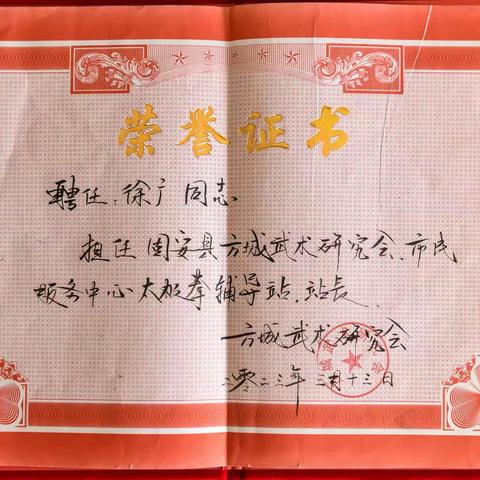 荣誉证书
聘任:徐广同志
担任固安县方城武术研究会.市民
服务中心太极拳辅导站.站长.
方城武术研究会
二零二三年三月十三日